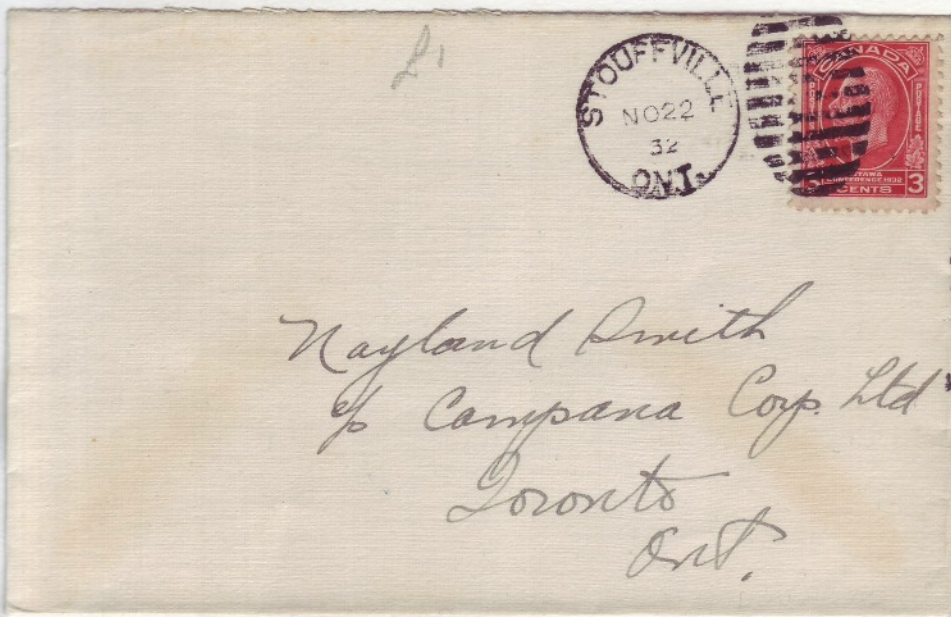 STOUFFVILLE
NO 22
32
ONT.
CANADA
POSTAGE
OTTAWA
CONFERENCE 1932
3 CENTS 3
Nayland Smith
c/o Campana Corp. Ltd
Toronto
Ont.